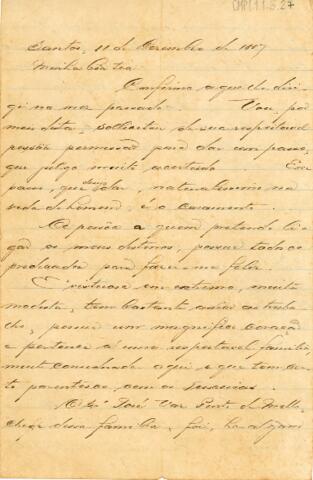 CMPI.1.5.27
Santos, 11 de Dezembro de 1887
Minha boa tia
Confirmo a que lhe diri-
gi no mez passado. Vou, por
meu dita, solicitar de sua respeitavel
pessôa permissão para dar um passo,
que julgo muito acertado. Esse
passo, que devo dar, naturalissimo na
vida do homem, é o casamento.
A pessôa a quem pretendo li-
gar os meus destinos, possue todos os
predicados para fazer-me feliz.
É virtuosa em extremo, muito
modesta, tem bastante amor ao traba-
lho, possue um magnifico coração
e pertence a uma respeitavel familia,
muito considerada aqui e que tem cer-
to parentesco com os
O Snr. José Vaz Pinto de Mello,
chefe dessa familia, foi, ha alguns